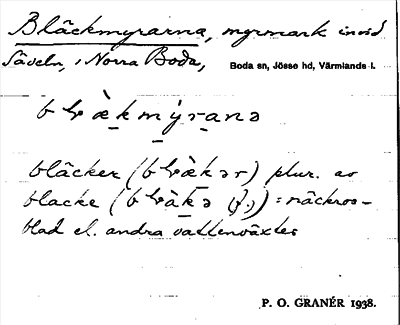 Bläckmyrarna, myrmark invid
Säveln, i Norra Boda, Boda sn, Jösse hd, Värmlands l.
bläcker ( ) plur. av
blacke ( ) = näckros-
blad el. andra vattenväxter
P. O. GRANÉR 1938.